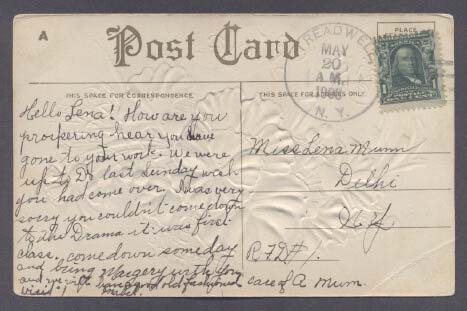 A
Post Card
PLACE
TREADWELL
MAY
20
A.M.
N.Y.
THIS SPACE FOR CORRESPONDENCE
THIS SPACE FOR ADDRESS ONLY.
Hello Lena! How are you
prospering hear you have
gone to your work. We were
up to D last Sunday wish
you had come over. I was very
sorry you couldn't come down
to the Drama it was first
class. come down some day
and bring Margery with you
and we will have a good old fashioned
visit!
Miss Lena Munn
Delhi
N.Y.
R.F.D #1.
care of A Munn.